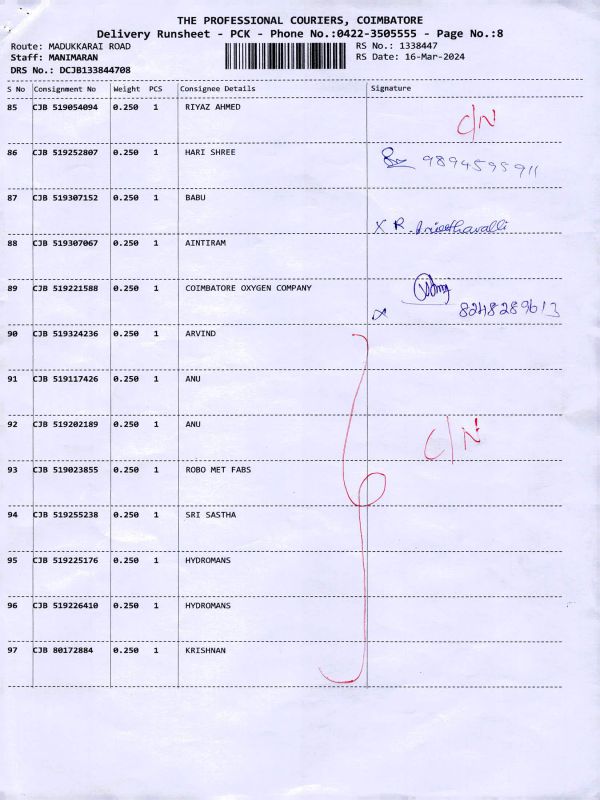 THE PROFESSIONAL COURIERS, COIMBATORE
Delivery Runsheet - PCK - Phone No.:0422-3505555 - Page No.:8
Route: MADUKKARAI ROAD RS No.: 1338447
Staff: MANIMARAN RS Date: 16-Mar-2024
DRS No.: DCJB133844708
S No Consignment No Weight PCS Consignee Details Signature
85 CJB 519054094 0.250 1 RIYAZ AHMED
C/N
86 CJB 519252807 0.250 1 HARI SHREE
9894595911
87 CJB 519307152 0.250 1 BABU
X R.
88 CJB 519307067 0.250 1 AINTIRAM
89 CJB 519221588 0.250 1 COIMBATORE OXYGEN COMPANY
8248289613
90 CJB 519324236 0.250 1 ARVIND
91 CJB 519117426 0.250 1 ANU
92 CJB 519202189 0.250 1 ANU
C/N
93 CJB 519023855 0.250 1 ROBO MET FABS
94 CJB 519255238 0.250 1 SRI SASTHA
95 CJB 519225176 0.250 1 HYDROMANS
96 CJB 519226410 0.250 1 HYDROMANS
97 CJB 80172884 0.250 1 KRISHNAN